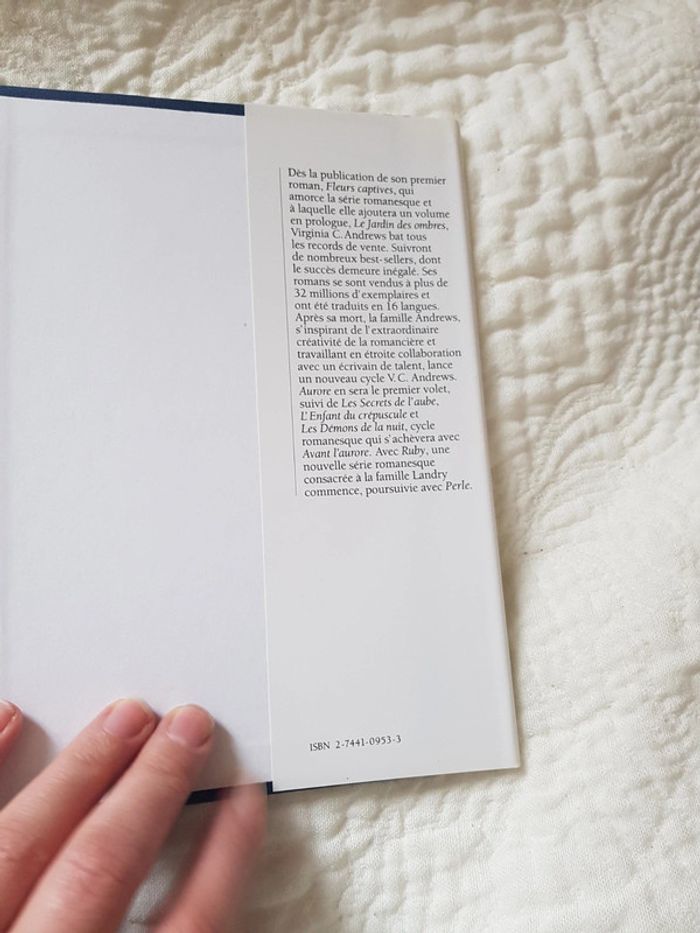 Dès la publication de son premier
roman, Fleurs captives, qui
amorce la série romanesque et
à laquelle elle ajoutera un volume
en prologue, Le Jardin des ombres,
Virginia C. Andrews bat tous
les records de vente. Suivront
de nombreux best-sellers, dont
le succès demeure inégalé. Ses
romans se sont vendus à plus de
32 millions d'exemplaires et
ont été traduits en 16 langues.
Après sa mort, la famille Andrews,
s'inspirant de l'extraordinaire
créativité de la romancière et
travaillant en étroite collaboration
avec un écrivain de talent, lance
un nouveau cycle V. C. Andrews.
Aurore en sera le premier volet,
suivi de Les Secrets de l'aube,
L'Enfant du crépuscule et
Les Démons de la nuit, cycle
romanesque qui s'achèvera avec
Avant l'aurore. Avec Ruby, une
nouvelle série romanesque
consacrée à la famille Landry
commence, poursuivie avec Perle.
ISBN 2-7441-0953-3